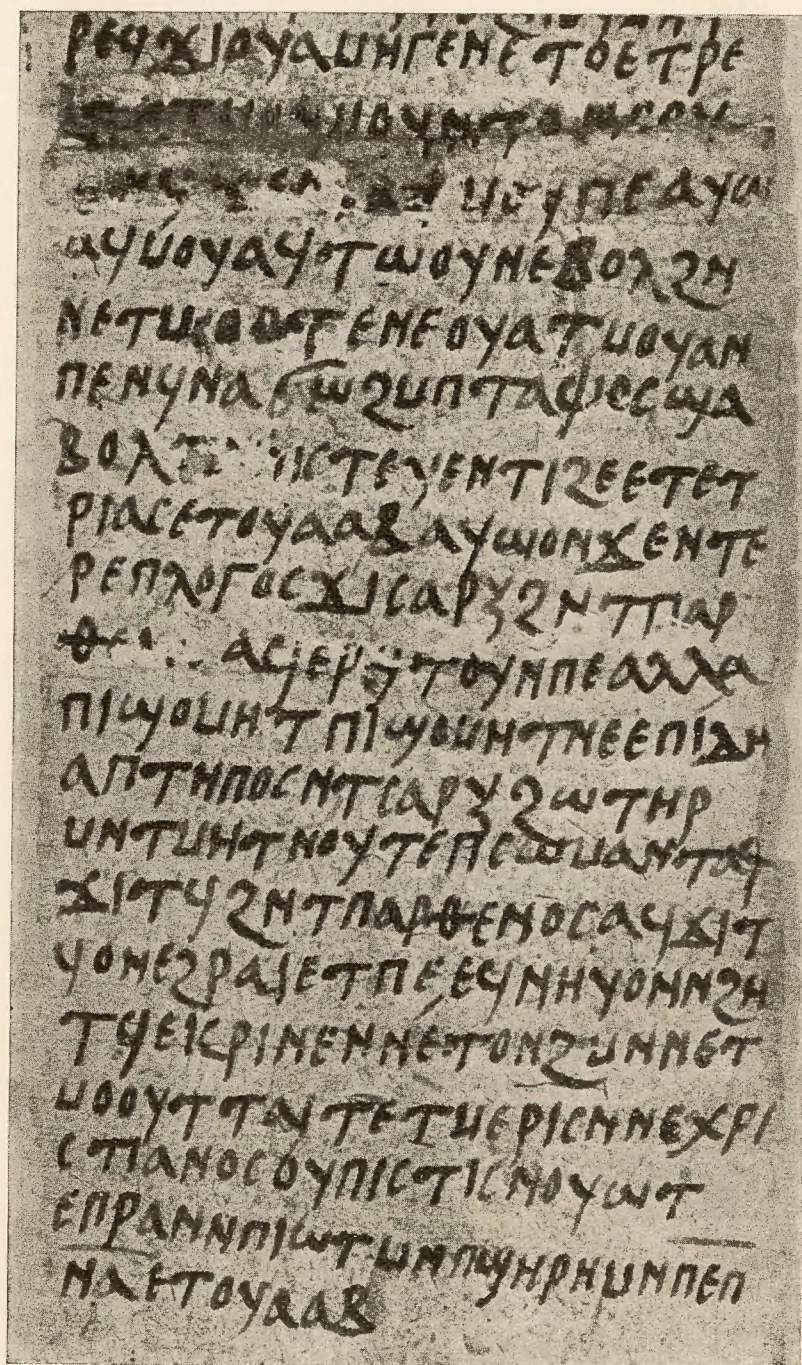 ⲣⲉϥϫⲓⲟⲩⲁⲙⲏⲅⲉⲛⲉⲧⲟⲉⲧⲣⲉ
ⲙⲉⲩⲡⲉⲁⲩⲱ
ⲁϥⲙⲟⲩⲁϥⲧⲱⲟⲩⲛⲉⲃⲟⲗϩⲛ
ⲛⲉⲧⲙⲟⲟⲩⲧⲉⲛⲉⲟⲩⲁⲧⲙⲟⲩⲁⲛ
ⲡⲉⲛϥⲛⲁϭⲱϩⲙⲡⲧⲁⲫⲟⲥϣⲁ
ⲃⲟⲗ ⲡⲓⲥⲧⲉⲩⲉⲛⲧⲓϩⲉⲉⲧⲉⲧ
ⲣⲓⲁⲥⲉⲧⲟⲩⲁⲁⲃⲁⲩⲱⲟⲛϫⲉⲛⲧⲉ
ⲣⲉⲡⲗⲟⲅⲟⲥϫⲓⲥⲁⲣⲝϩⲛⲧⲡⲁⲣ
ⲁϥⲉⲣⲯⲧⲟⲩⲙⲡⲉⲁⲗⲗⲁ
ⲡⲓϣⲟⲙⲏⲧⲡⲓϣⲟⲙⲏⲧⲛⲉⲉⲡⲓⲇⲏ
ⲁⲡⲧⲏⲡⲟⲥⲛⲧⲥⲁⲣⲝϩⲱⲧⲏⲣ
ⲙⲛⲧⲙⲏⲧⲛⲟⲩⲧⲉⲡⲉⲥⲱⲙⲁⲛⲧⲁϥ
ϫⲓⲧϥϩⲛⲧⲡⲁⲣⲑⲉⲛⲟⲥⲁϥϫⲓⲧ
ϥⲟⲛⲉϩⲣⲁⲓⲉⲧⲡⲉⲉϥⲛⲏⲩⲟⲛⲛϩⲏ
ⲧϥⲉⲓⲕⲣⲓⲛⲉⲛⲛⲉⲧⲟⲛϩⲙⲛⲛⲉⲧ
ⲙⲟⲟⲩⲧⲧⲁⲓⲧⲉⲧⲙⲉⲣⲓⲥⲛⲛⲉⲭⲣⲓ
ⲥⲧⲓⲁⲛⲟⲥⲟⲩⲡⲓⲥⲧⲓⲥⲛⲟⲩⲱⲧ
ⲉⲡⲣⲁⲛⲙⲡⲓⲱⲧⲙⲛⲡϣⲏⲣⲏⲙⲛⲡⲉⲡ
ⲛⲁⲉⲧⲟⲩⲁⲁⲃ